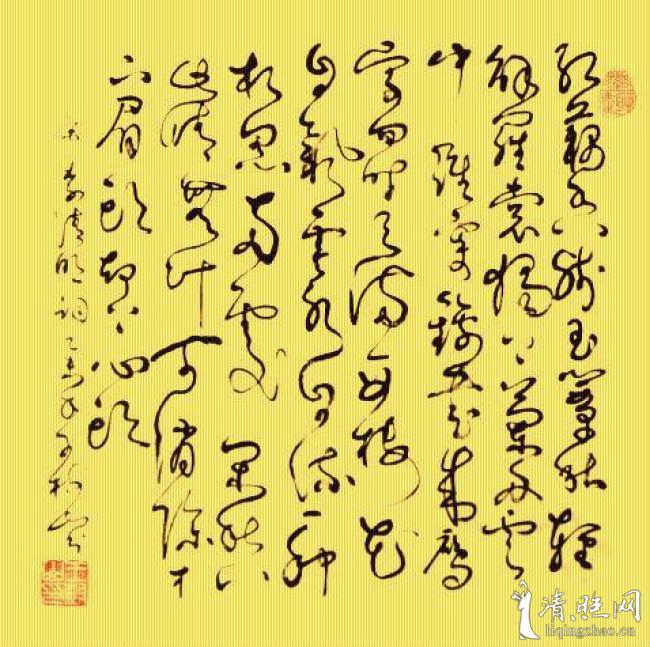 红藕香残玉簟秋轻
解罗裳独上兰舟云
中谁寄锦书来雁
字回时月满西楼花
自飘零水自流一种
相思两处闲愁
此情无计可消除才
下眉头却上心头
李清照词
清照网
liqingzhao.cn